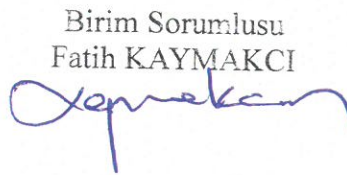 Birim Sorumlusu
Fatih KAYMAKCI